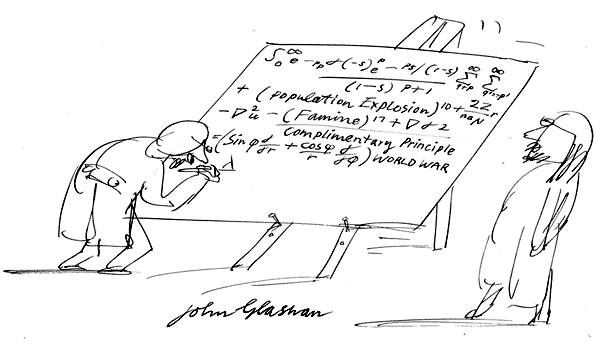 ∫₀^∞ e^-pd (-s)e^p - ps/(1-s) ∑^∞ ∑^∞
(1-s) p+1
+ (population Explosion)¹⁰ + 2Z r
- ∇²u - (Famine)¹⁷ + ∇ d 2
Complimentary Principle
= (Sin φ d/dr + cosφ/r d/dφ) WORLD WAR
John Glashan